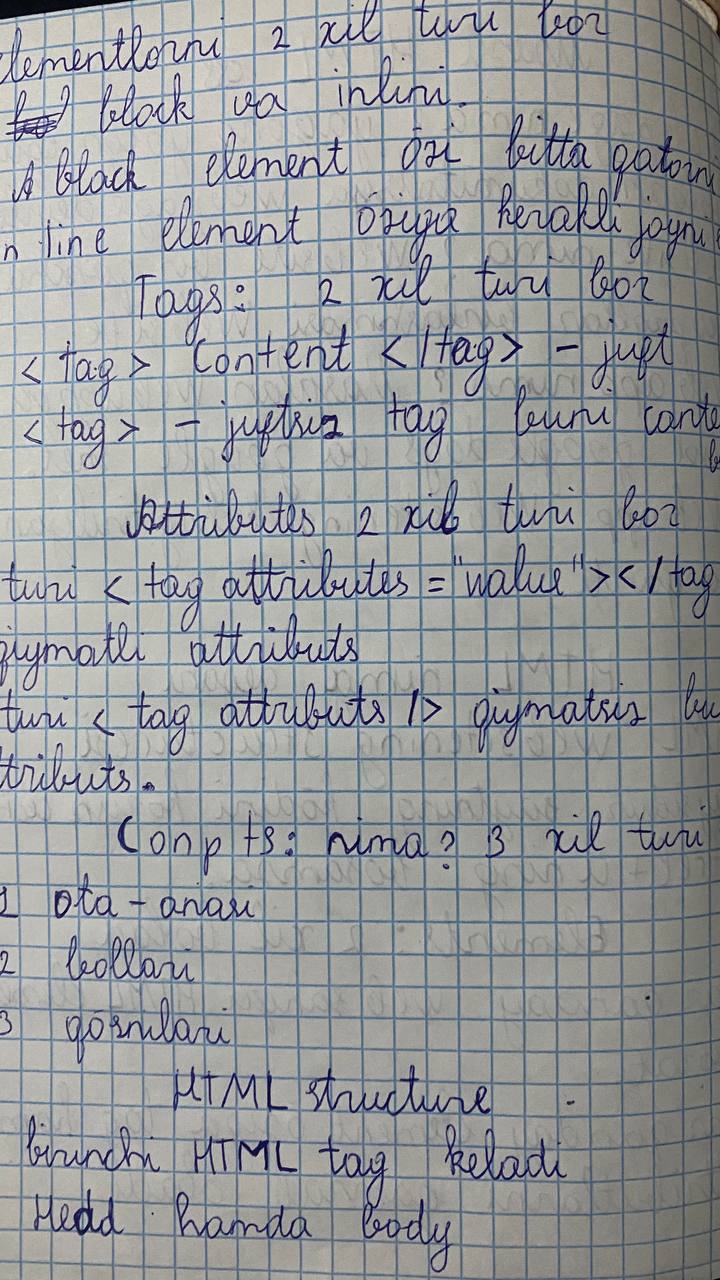 lementlorni 2 xil turi bor
block va inlini.
A block element özi bitta qatorni
n line element öziga kerakli joyni
Tags: 2 xil turi bor
<tag> Content </tag> - juft
<tag> - juftsiz tag buni conte
Attributes 2 xil turi bor
turi <tag attributes = "value"></tag
qiymatli attributs
turi <tag attributs /> qiymatsiz bu
tributs.
Conpts: nima? 3 xil turi
1 ota-anasi
2 bollari
3 qösnilari
HTML structure
birinchi HTML tag keladi
Hedd hamda body